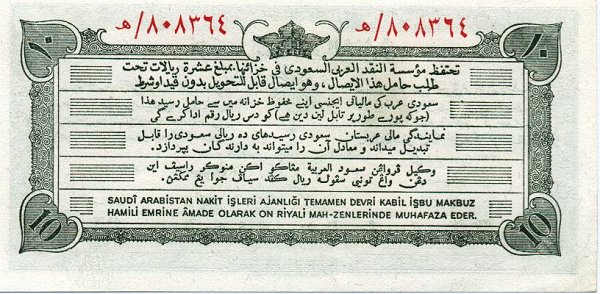 ه/٨٠٨٣٦٤ ه/٨٠٨٣٦٤
١٠ ١٠
تحتفظ مؤسسة النقد العربى السعودى فى خزائنها بمبلغ عشرة ريالات تحت
طلب حامل هذا الايصال ، وهو ايصال قابل للتحويل بدون قيد او شرط
سعودی عرب کی مالیاتی ایجنسی اپنے محفوظ خزانہ میں سے حامل رسید هذا
(جو کہ پورے طور پر تابل لین دین ہے) کو دس ریال رقم ادا کرے گی
نمایندگی مالی عربستان سعودی رسیدهای ده ریالی سعودی را قابل
تبدیل میداند و معادل آن را میتواند به دارندگان بپردازد.
وكيل سعود العربية اكن رسيف اين
دڠن ريال كفد سياف جوا يڠ
SAUDÎ ARABİSTAN NAKİT İŞLERİ AJANLIĞI TEMAMEN DEVRİ KABİL İŞBU MAKBUZ
HAMİLİ EMRİNE ÂMADE OLARAK ON RİYALİ MAH-ZENLERİNDE MUHAFAZA EDER.
10 10